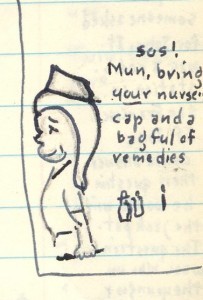 sos!
Mun, bring
your nurse's
cap and a
bag ful of
remedies